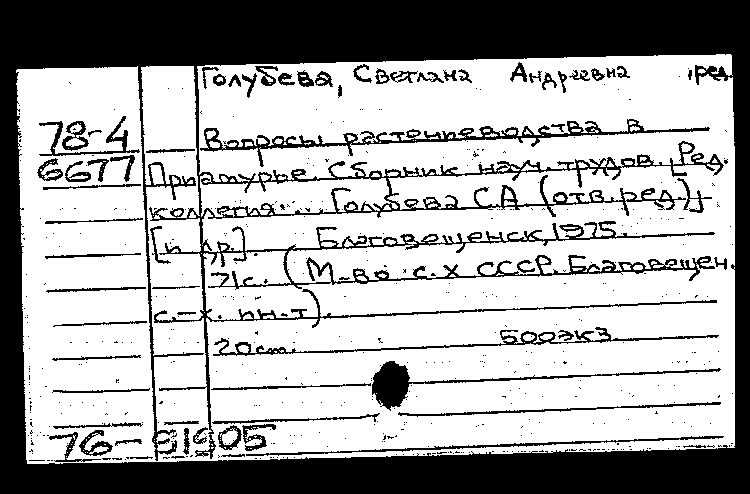 Голубева, Светлана Андреевна ,ред.
78-4 Вопросы растениеводства в
6677 Приамурье. Сборник науч. трудов. [Ред.
коллегия: ... Голубева С.А. (отв.ред.)]
[и др.]. Благовещенск, 1975.
71с. (М-во с.х СССР. Благовещен.
с.-х. ин-т).
20cm. 500экз
76-91905